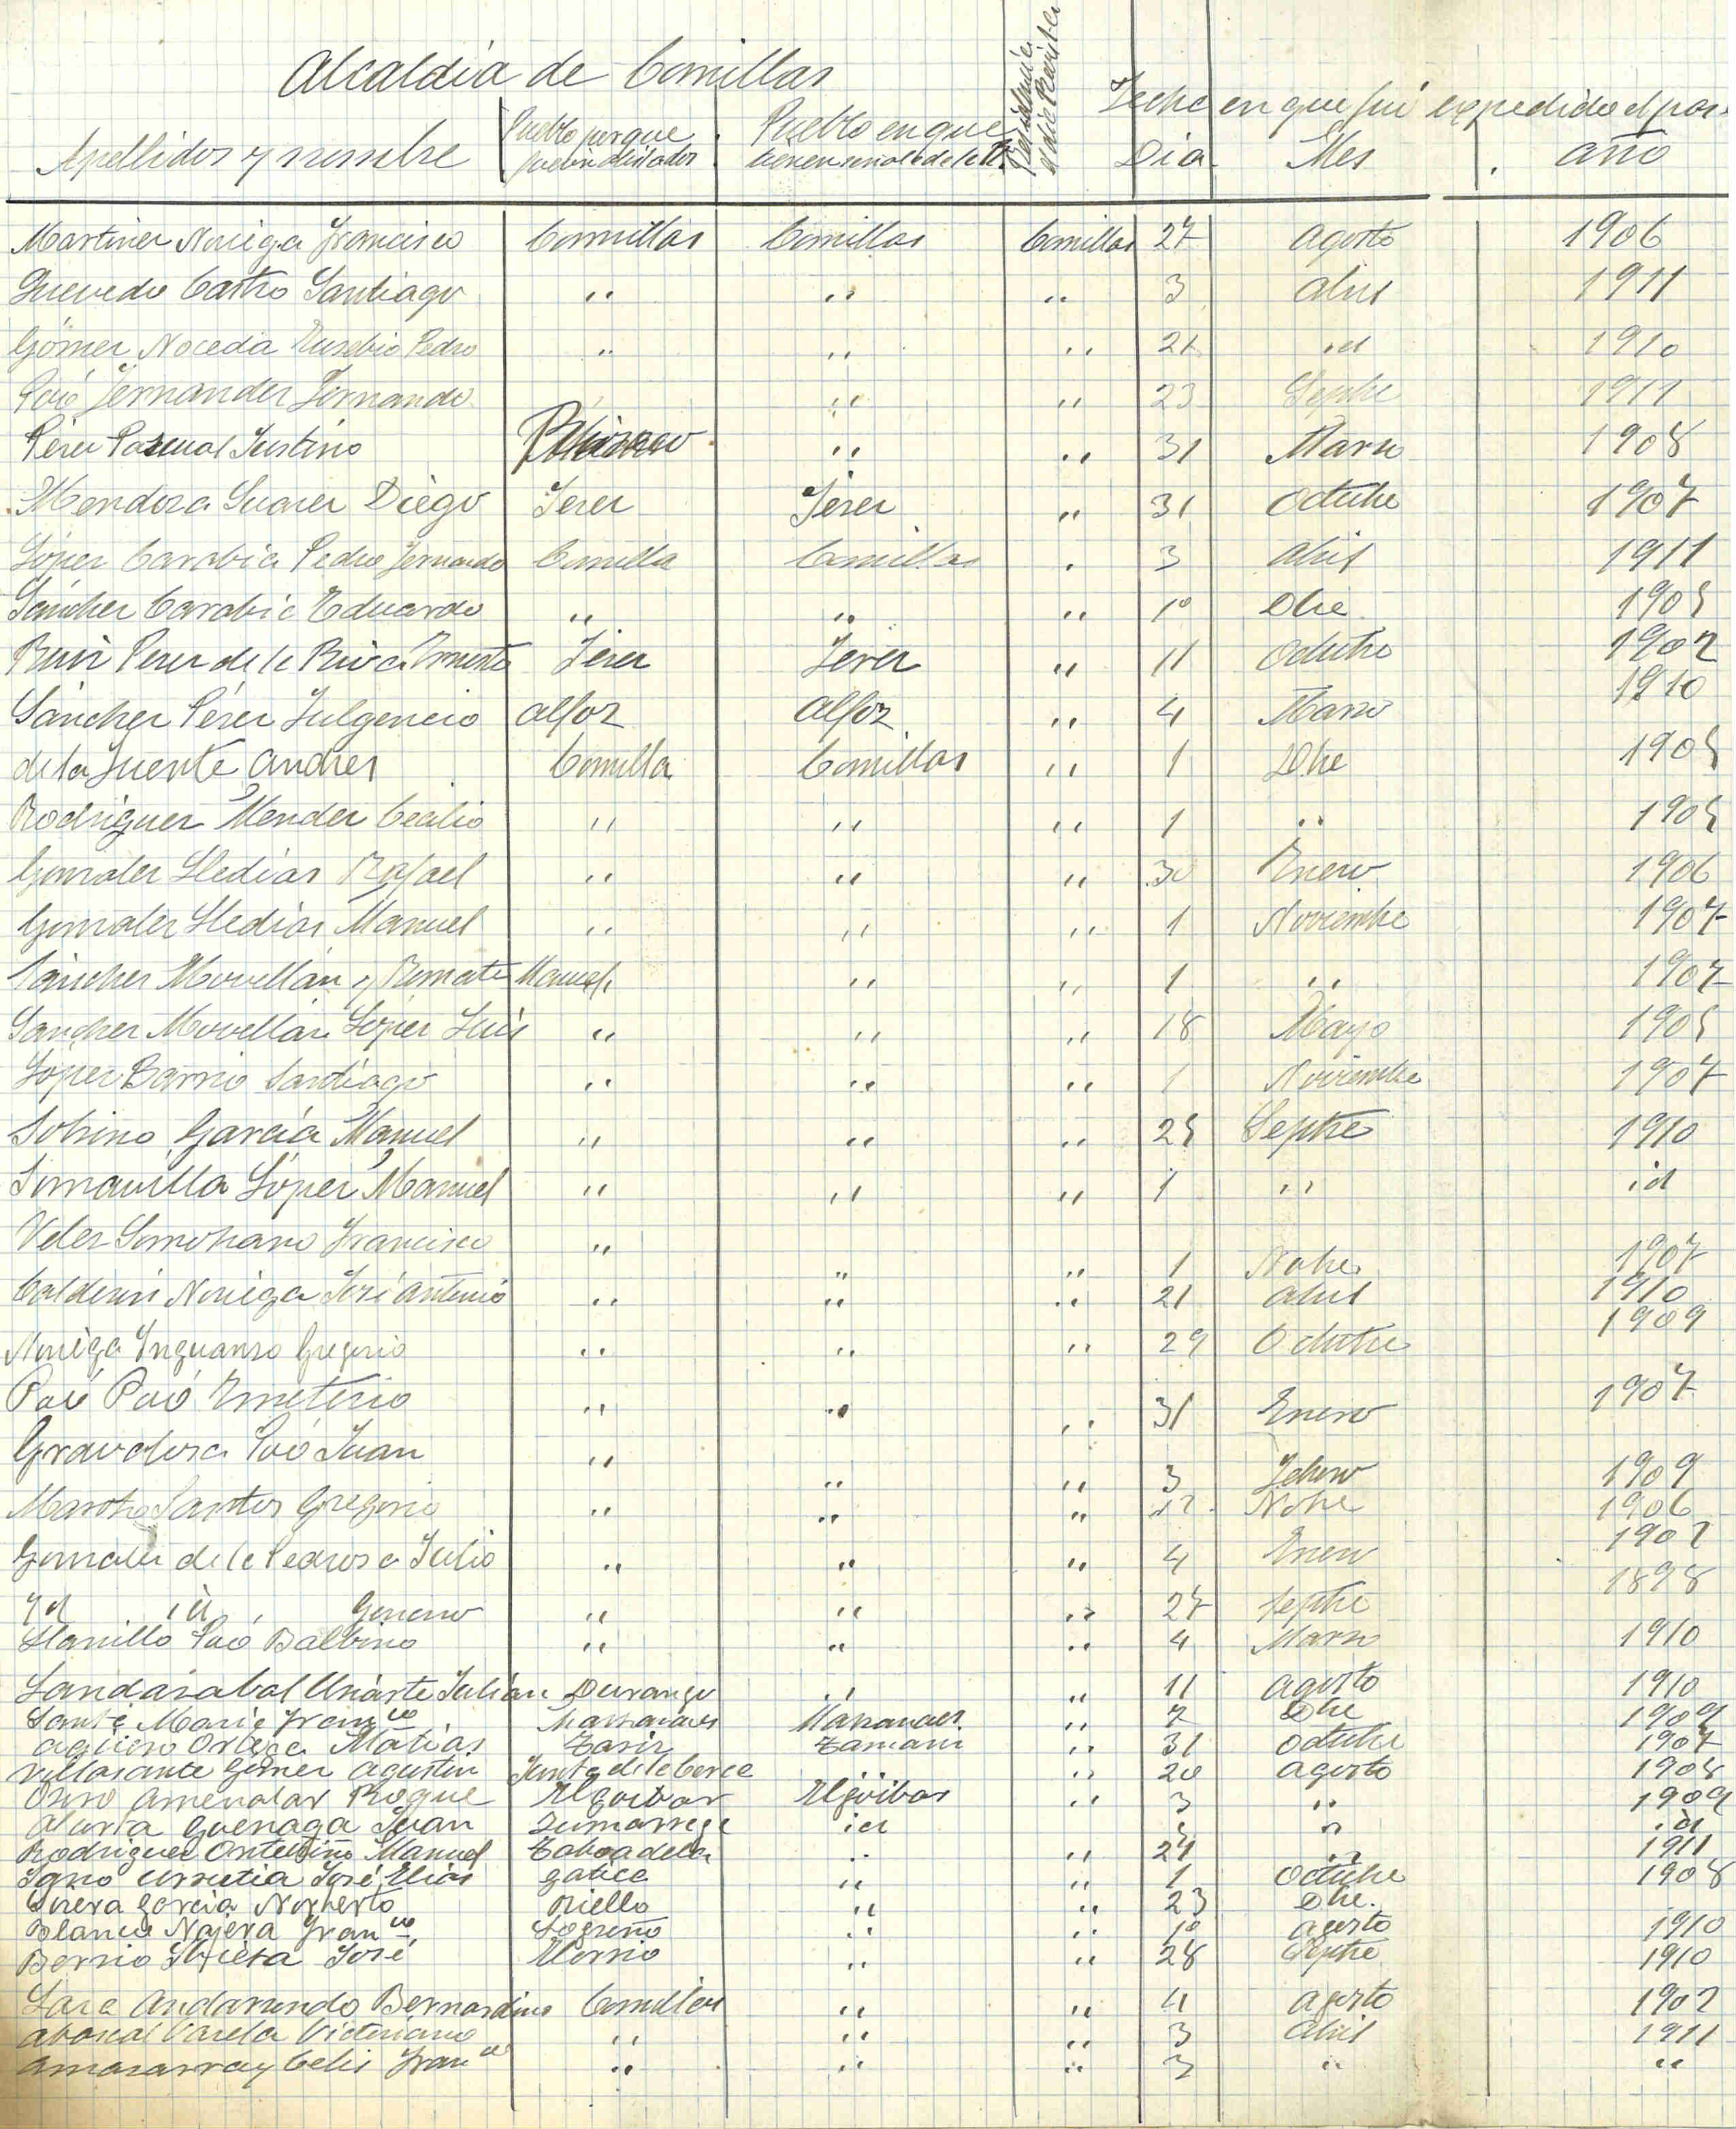 Alcaldía de Comillas
Apellidos y nombre Pueblo por que fueron alistados Pueblo en que tienen señalada la Residencia Fecha en que fué expedido el pas.
Día Mes año
Martinez Noriega Francisco Comillas Comillas Comillas 27 agosto 1906
Quevedo Castro Santiago " " " 3 abril 1911
Gómez Noceda Eusebio Pedro " " " 21 id 1910
Poó Fernandez Fernando " " " 23 Septbe 1911
Pérez Pascual Justino " " 31 Marzo 1908
Mendoza Suarez Diego Jerez Jerez " 31 Octubre 1907
López Carabia Pedro Fernando Comilla Comillas " 3 abril 1911
Sánchez Carabia Eduardo " " " 1º Dbe 1905
Ruiz Perez de la Riva Ernesto Jérez Jérez " 11 Octubre 1902
Sánchez Pérez Fulgencio alfoz alfoz " 4 Marzo 1910
de la Fuente Andres Comilla Comillas " 1 Dbe 1905
Rodriguez Mendez Cecilio " " " 1 " 1905
Gonzalez Lledías Rafael " " " 30 Enero 1906
Gonzalez Lledías Manuel " " " 1 Noviembre 1907
Sánchez Movellán y Manuel " " 1 " 1907
Sanchez Movellán López Luis " " " 18 Mayo 1905
López Barrio Santiago " " " 1 Noviembre 1907
Sobrino García Manuel " " " 25 Septbre 1910
Somavilla López Manuel " " " 1 " id
Velez Somohano Francisco " " " 1 Nobre 1907
Calderón Noriega José Antonio " " " 21 abril 1910
Noriega Inguanzo Gregorio " " " 29 Octubre 1909
Poó Poó Emeterio " " " 31 Enero 1907
Gravalosa Poó Juan " " " 3 Febrero 1909
Santos Gregorio " " " Nobe 1906
Gonzalez de la Pedrosa Julio " " " 4 Enero 1902
Id id Genaro " " " 27 septbe 1898
Llanillo Poó Balbino " " " 4 Marzo 1910
Landázabal Uriarte Julián Durango " " 11 agosto 1910
Santa María Franco Manzanares " 7 Dbe 1909
Agüero Ortega Matías " 31 octubre 1907
Villasante Gómez Agustin Junta de la Cerca " " 20 agosto 1908
Amenabar Roque Elgoibar Elgoibar " 3 " 1909
Alusta Guenaga Juan Zumarraga id " " id
Rodriguez Manuel Taboadela " " 24 " 1911
Urrutia José Elías gatica " " 1 Octubre 1908
García Norberto Riello " " 23 Dbe.
Blanco Najera Franco Logroño " " 1º agosto 1910
Berrio José Elorrio " " 28 Septbe 1910
Lara Andarundo Bernardino Comillas " " 4 agosto 1902
Abascal Varela Victoriano " " " 3 abril 1911
Amasarray Celis Franco " " " 3 " "